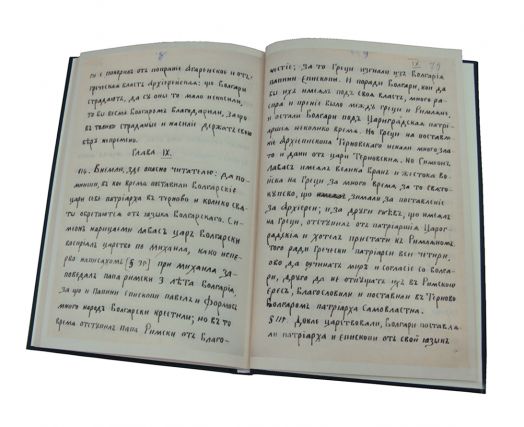 8
ги є покорилъ отъ попраніе Агаренское и отъ
греческая власть Архіерейская: що Болгари
страдаютъ, да су они то мало испесили,
то бы весма Болгаромъ благодарили, защо
въ такою страданые и насиліе держатъ свою
вѣру непремено.
Глава IX.
Внемли, зде опасно читателю: да по-
мниши, въ кое време поставили Болгарскіе
цари себи патріарха въ Терново и колико свя-
ти обретоются отъ языка Болгарскаго. Си-
меонъ нарицаеми Лавасъ царъ Болгарски
воспріялъ царство по Михаила, како непе-
рво написахомъ [§ 30] при михаила за-
поведалъ папа римски 3 лѣта Болгарія,
за що и Папини Епископи павелъ и формосъ
много народъ болгарски крестили; но въ то
време отступилъ папа Римски отъ благо-
9
IX 79
честіе; за то Греци изгнали изъ Болгарія
Папини Епископи. И поради Болгари, кои да
бы ихъ имеялъ подъ своя власть, много ра-
спра и преніе было между греци и Римляни,
и остали Болгари подъ Цариградская патрі-
аршия неколико време. Но Греци на поставле-
ніе Архіепископа Терновскаго искали много зла-
то и дани отъ цари Терновския. Но Симеонъ
Лавасъ имеялъ велика брань и жестока во-
йска на Греци за много време, за то свято-
купство, що зимали за поставленіе
за Архіереи; и за други гневъ, що имеялъ
на Греци, отступилъ отъ патріаршия Царог-
радския и хотелъ пристати къ Римляномъ.
того ради Гречески патріарси вси четири,
ово да очинатъ миръ и согласіе со Болга-
ри, друго да не отпущатъ ихъ въ Римскою
ересъ, благословили и поставили въ Терново
Болгаромъ патріарха Самовластна.
Докле царствовали, Болгари поставля-
ли патріарха и епископи отъ свой языкъ